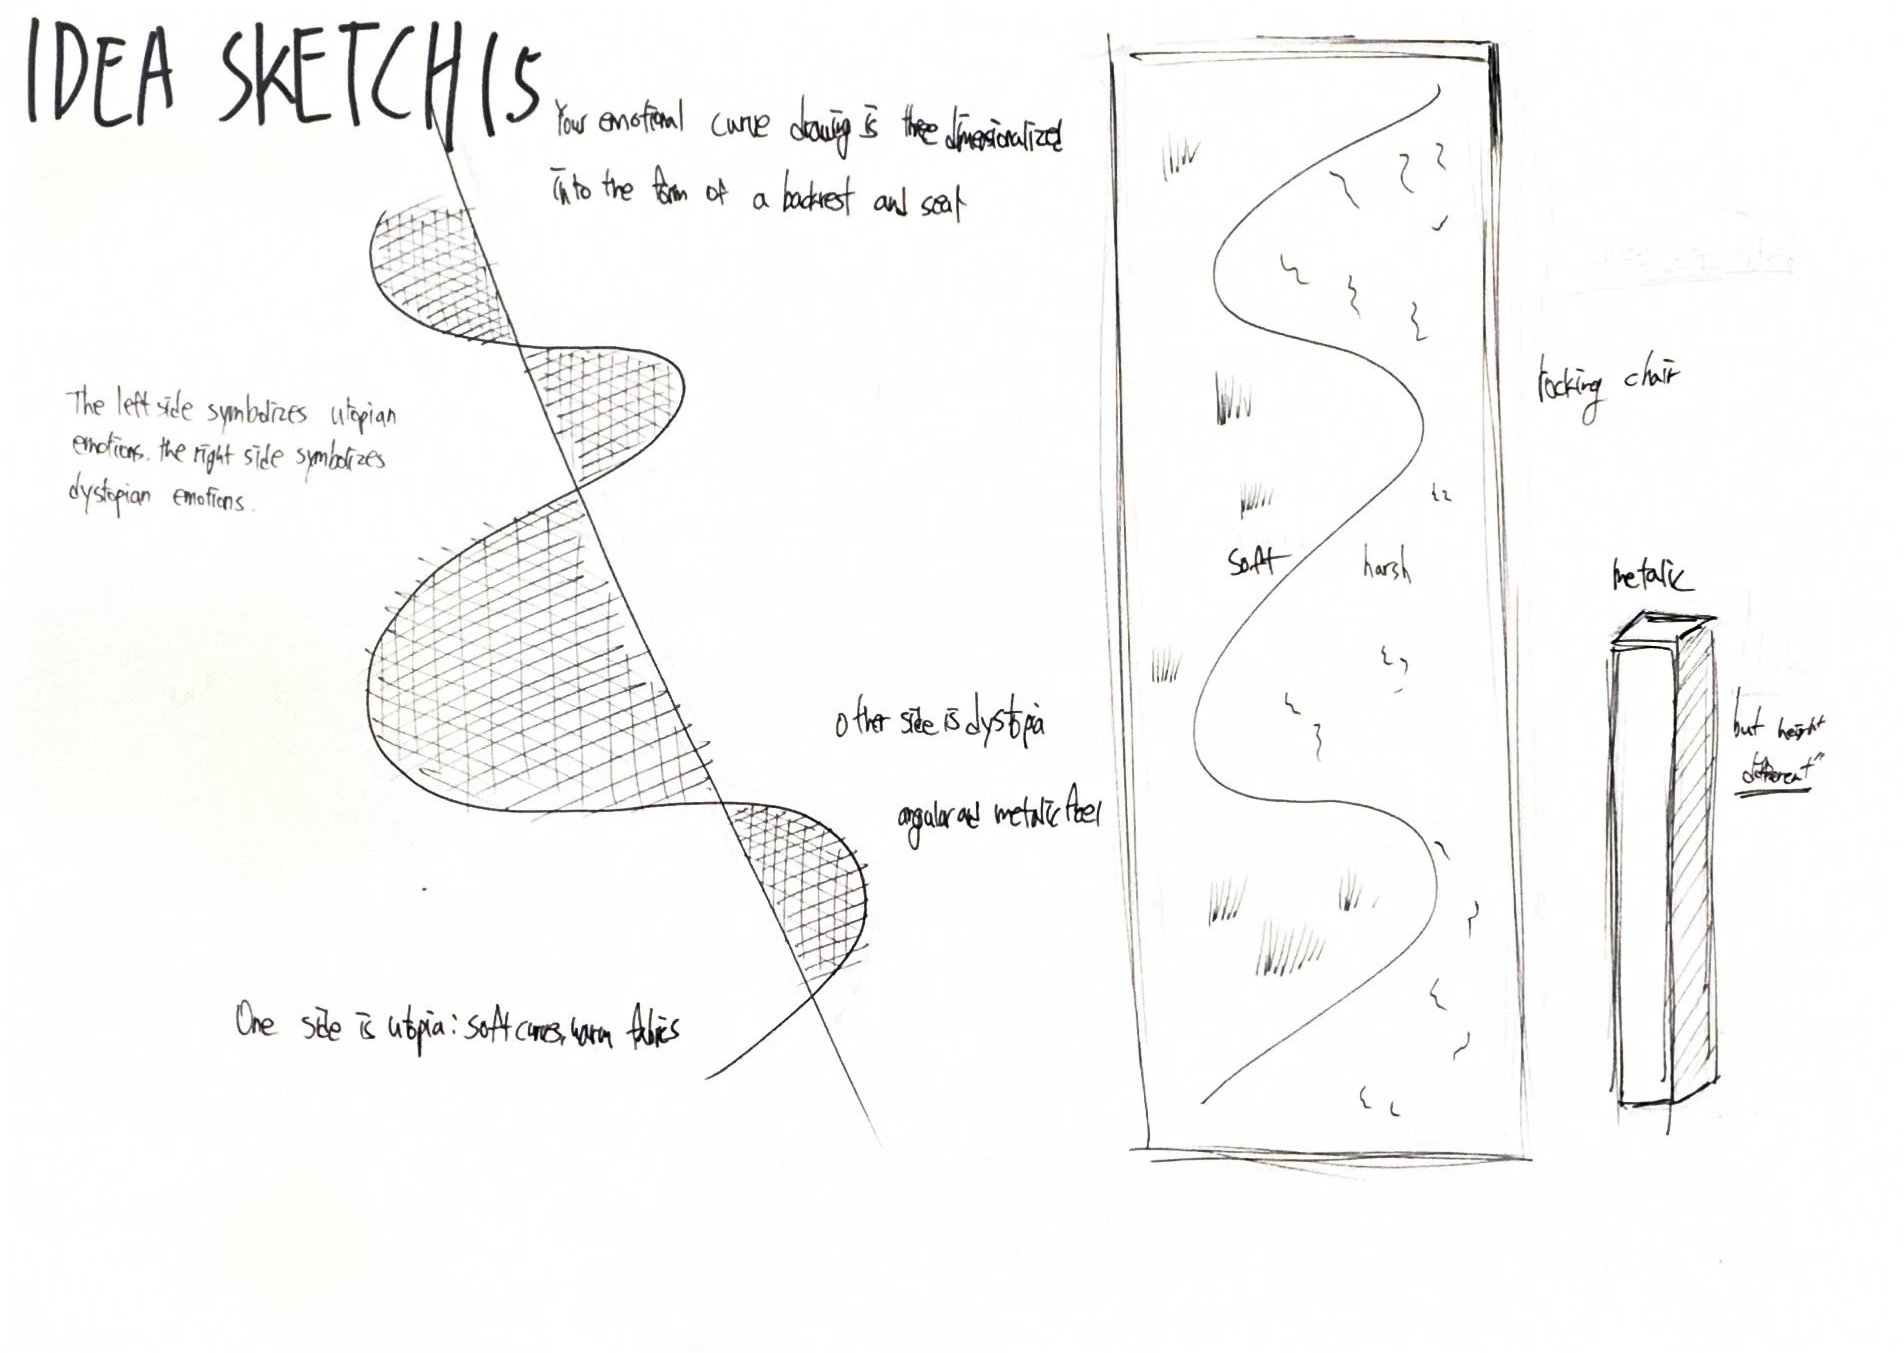 IDEA SKETCH 15
Your emotional curve drawing is three dimensionalized
into the form of a backrest and seat
The left side symbolizes utopian
emotions. the right side symbolizes
dystopian emotions.
One side is utopia: soft curves, warm fabrics
other side is dystopia
angular and metalic feel
soft
harsh
rocking chair
metalic
but height
different"